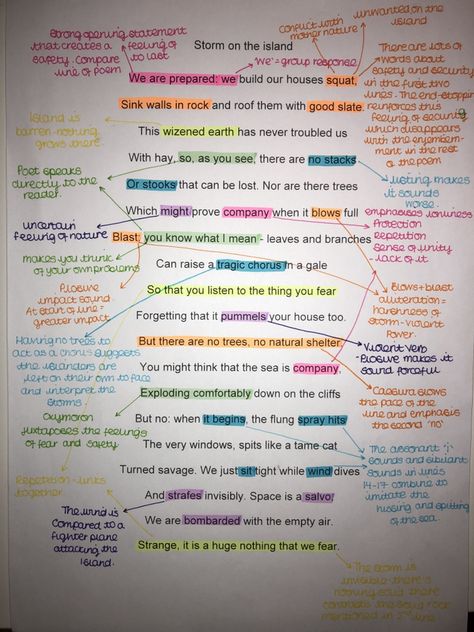 Storm on the island
We are prepared: we build our houses squat,
Sink walls in rock and roof them with good slate.
This wizened earth has never troubled us
With hay, so, as you see, there are no stacks
Or stooks that can be lost. Nor are there trees
Which might prove company when it blows full
Blast: you know what I mean - leaves and branches
Can raise a tragic chorus in a gale
So that you listen to the thing you fear
Forgetting that it pummels your house too.
But there are no trees, no natural shelter.
You might think that the sea is company,
Exploding comfortably down on the cliffs
But no: when it begins, the flung spray hits
The very windows, spits like a tame cat
Turned savage. We just sit tight while wind dives
And strafes invisibly. Space is a salvo,
We are bombarded with the empty air.
Strange, it is a huge nothing that we fear.
Strong opening statement
that creates a feeling of
safety. Compare to last
line of poem
'We' = group response
Conflict with
mother nature
unwanted on the
island
There are lots of
words about
safety and security
in the first two
lines. The end-stopping
reinforces this
feeling of security
which disappears
with the enjambe-
ment in the rest of
the poem
Island is
barren-nothing
grows there
Poet speaks
directly to the
reader.
Listing makes
it sounds
worse.
uncertain
feeling of nature
emphasises loniness
Protection
repetition
Sense of unity
- lack of it
makes you think
of your own problems
Plosive
impact sound.
At start of line =
greater impact
Blows + blast
aliteration =
harshness of
storm-violent
Power.
Having no trees to
act as a chorus suggests
the islanders are
left on their own to face
and interpret the
storms
Violent verb
- Plosive makes it
sound forceful
Oxymoron
juxtaposes the feelings
of fear and safety
Caesura slows
the pace of the
line and emphasis
the second 'no'
The assonant 'i'
sounds and sibilant
sounds in lines
14-17 combine to
imitate the
hissing and spitting
of the sea.
Repetition - links
together
The wind is
compared to a
fighter plane
attacking the
Island.
The storm is
invisible - there's
nothing solid there
contrasts the solid rock
mentioned in 2nd line